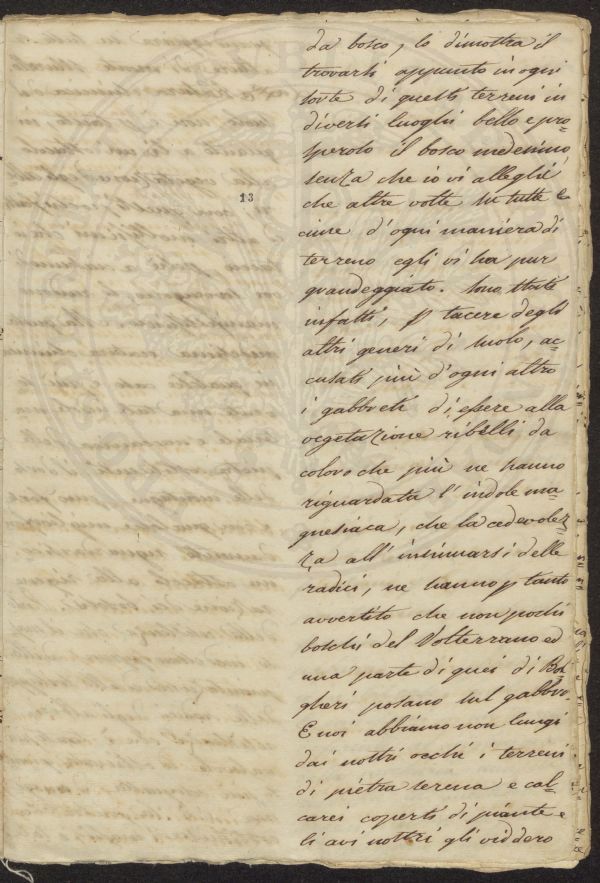 13
da bosco, lo dimostra il
trovarsi appunto in ogni
sorte di questi terreni in
diversi luoghi bello e pro-
speroso il bosco medesimo,
senza che io vi alleghi
che altre volte su tutte e
cime d'ogni maniera di
terreno egli vi ha pur
grandeggiato. Sono state
infatti, p tacere degli
altri generi di suolo, ac-
cusati più d'ogni altro
i gabbreti di essere alla
vegetazione ribelli da
coloro che più ne hanno
riguardata l'indole ma-
gnesiaca, che la cedevolez-
za all'insinuarsi delle
radici, ne hanno p tanto
avvertito che non pochi
boschi del Volterrano ed
una parte di quei di Bol-
gheri posano sul gabbro.
E noi abbiamo non lungi
dai nostri occhi i terreni
di pietra serena e cal-
carei coperti di piante e
li avi nostri gli viddero